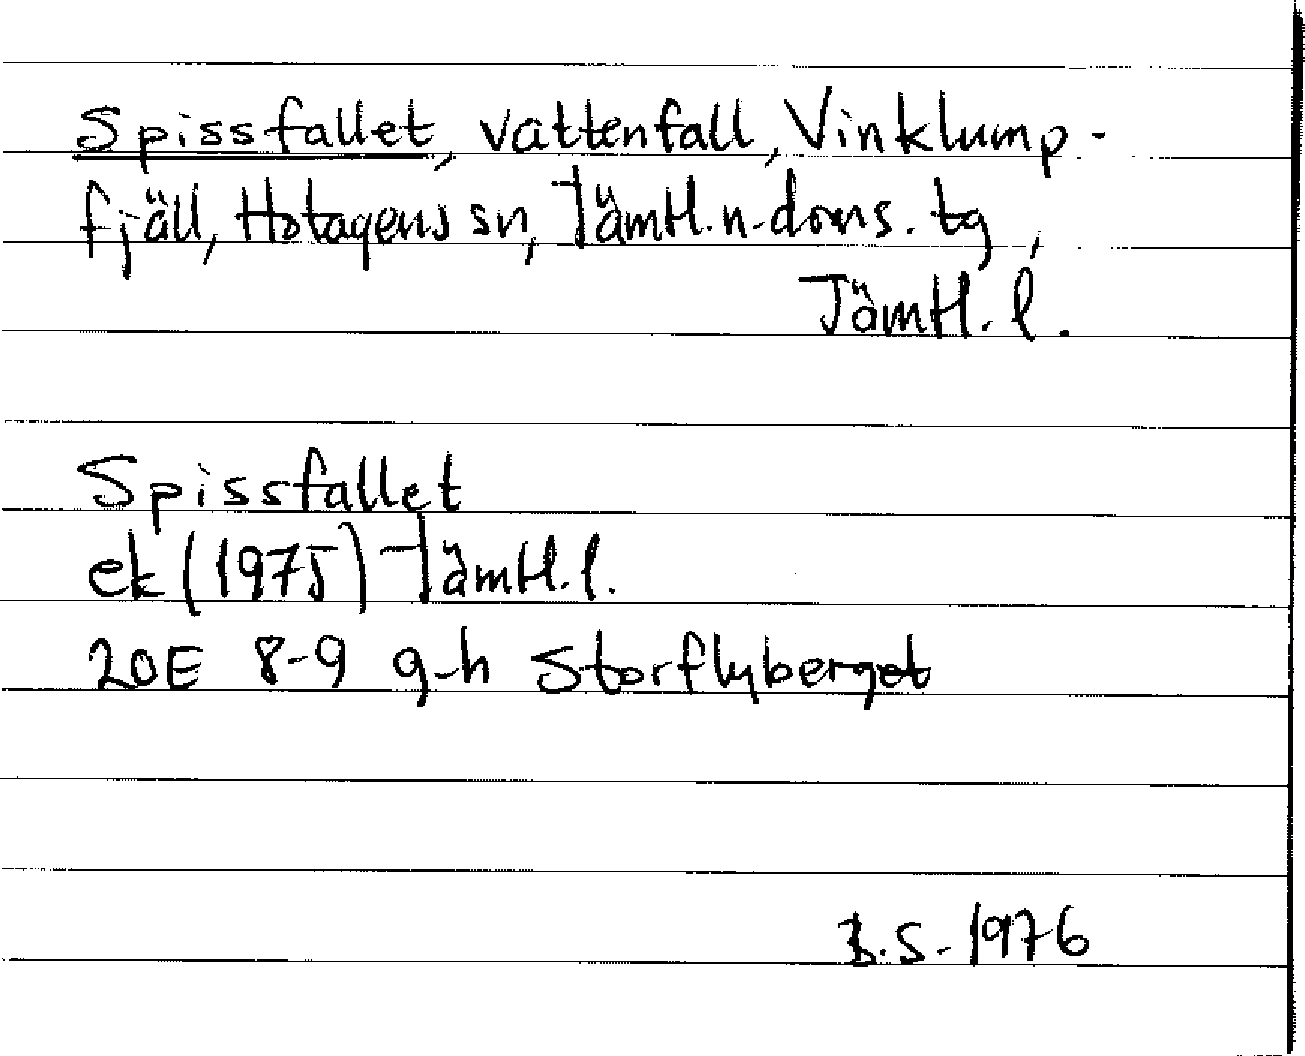 Spissfallet, vattenfall, Vinklump-
fjäll, Hotagens sn, Jämtl. n. doms. tg,
Jämtl. l.
Spissfallet
ek (1975) Jämtl. l.
20E 8-9 g-h Storflyberget
B.S. 1976